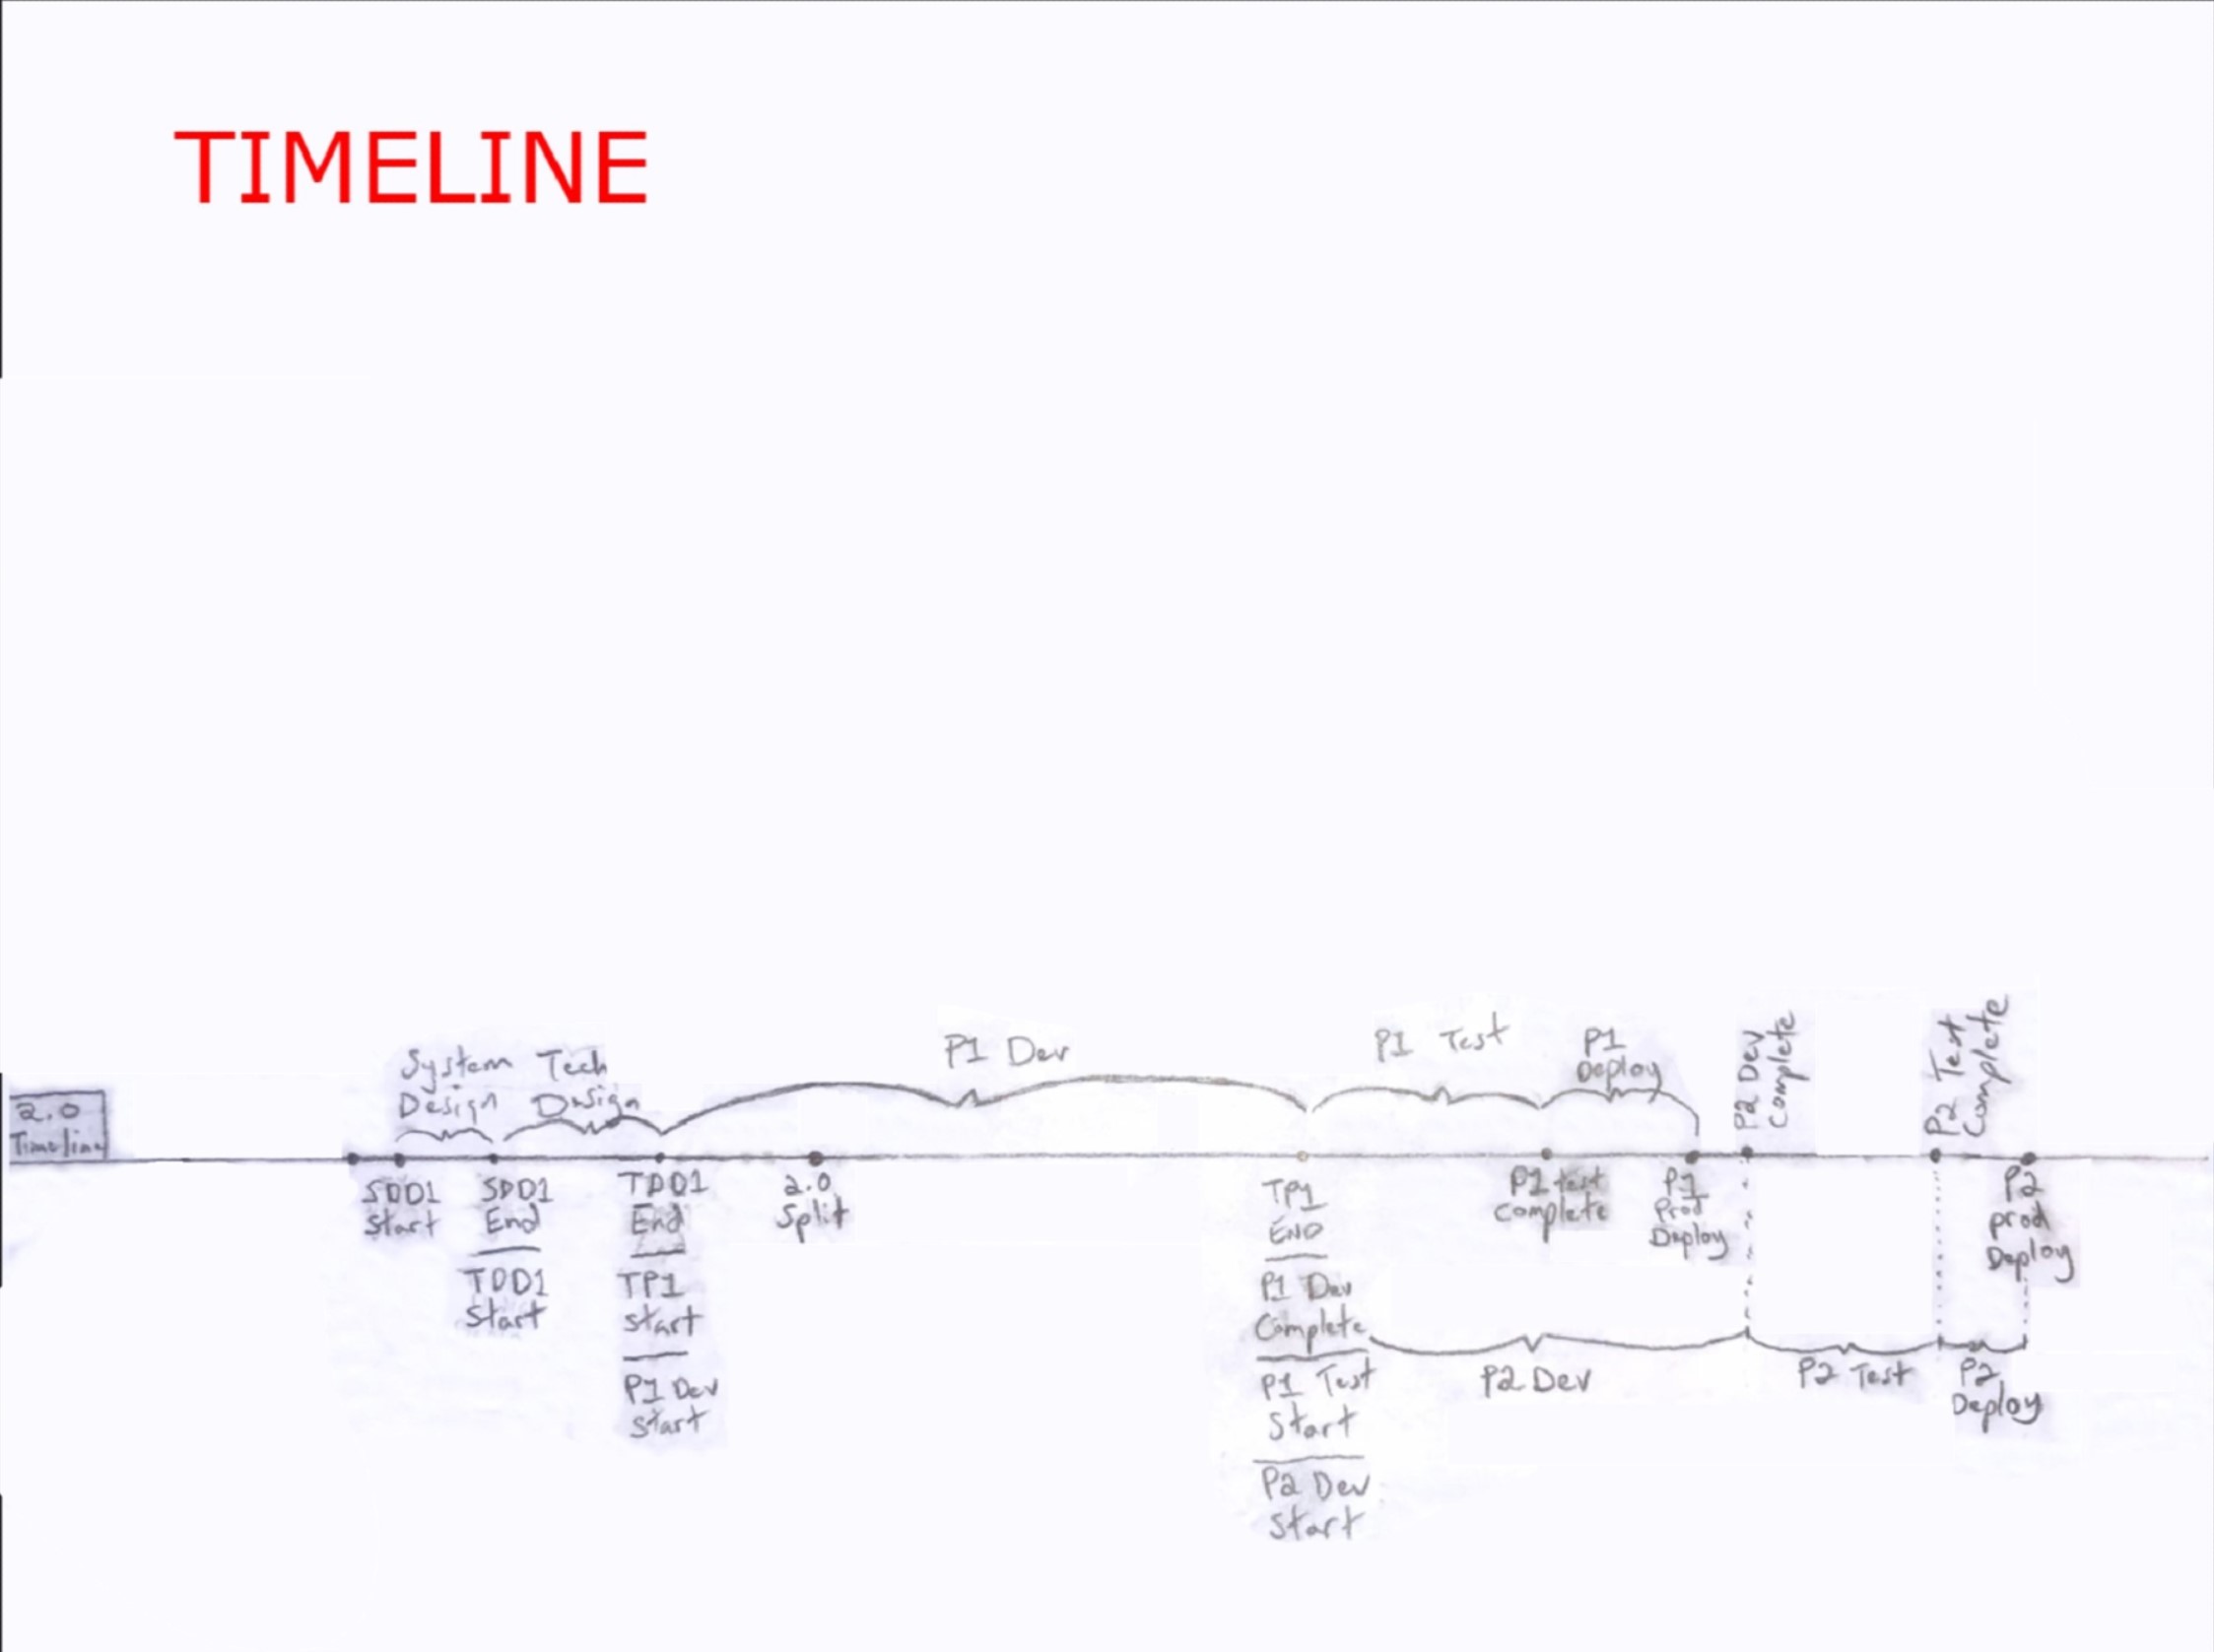 TIMELINE
2.0
Timeline
System
Design
Tech
Design
P1 Dev
P1 Test
P1
Deploy
P2 Dev
Complete
P2 Test
Complete
SDD1
Start
SDD1
End
TDD1
Start
TDD1
End
TP1
Start
P1 Dev
Start
2.0
Split
TP1
END
P1 Dev
Complete
P1 Test
Start
P2 Dev
Start
P1 test
complete
P1
Prod
Deploy
P2
prod
Deploy
P2 Dev
P2 Test
P2
Deploy